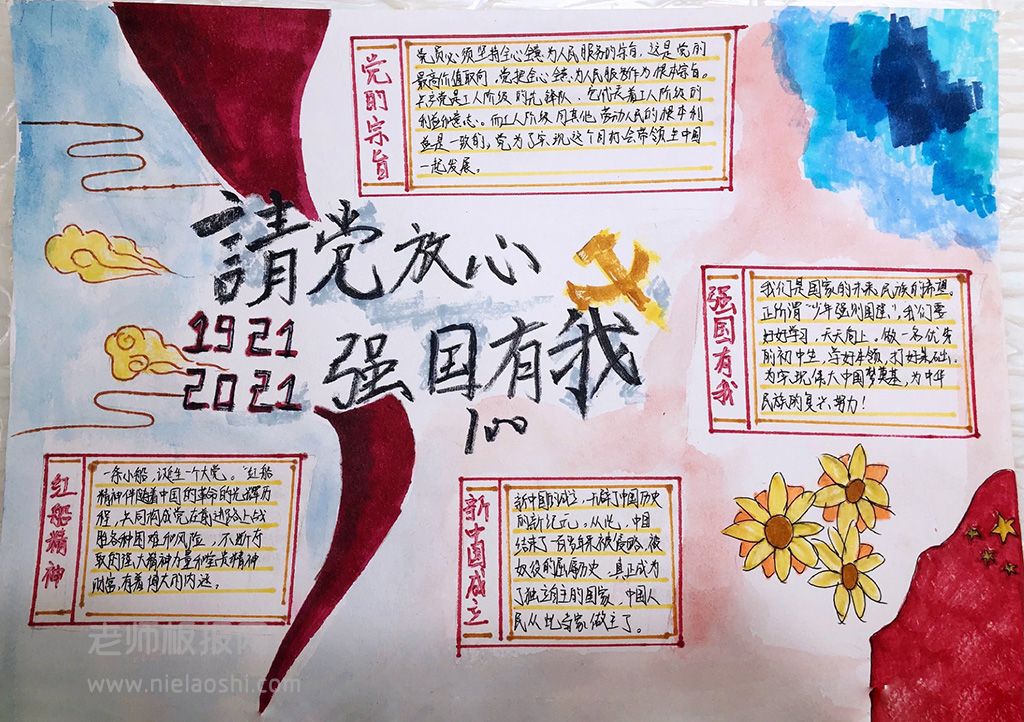 党的宗旨
党员必须坚持全心全意为人民服务的宗旨,这是党的
最高价值取向,党把全心全意为人民服务作为根本宗旨。
共产党是工人阶级的先锋队,它代表着工人阶级的
利益和意志。而工人阶级同其他劳动人民的根本利
益是一致的,党为了实现这个目标会带领上中国
一起发展。
請党放心
1921
2021
强国有我
100
强国有我
我们是国家的未来,民族的希望。
正所谓“少年强则国强”,我们要
好好学习,天天向上。做一名优秀
的初中生,学好本领,打好基础,
为实现伟大中国梦奠基,为中华
民族的复兴努力!
红船精神
一条小船,诞生一个大党。“红船
精神伴随着中国的革命的光辉历
程,共同构成党在前进路上战
胜各种困难和风险,不断夺
取的强大精神力量和宝贵精神
财富,有着博大的内涵。
新中国成立
新中国的成立,
中国历史
的新纪元。从此,中国
结束了一百多年来被侵略,被
奴役的屈辱历史,真正成为
了独立自主的国家,中国人
民从此当家做主了。
老师板报网
www.nielaoshi.com